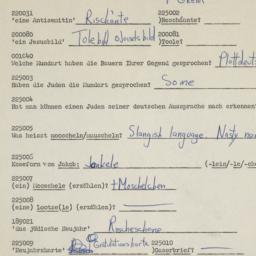 220031 225002
'eine Antisemitin' Rischänte Reschánte?
200080 220081
'ein Jesusbild' Tole?
001640
Welche Mundart haben die Bauern Ihrer Gegend gesprochen? Plattdeuts
225003
Haben die Juden die Mundart gesprochen? Some
225004
Hat man können einen Juden seiner deutschen Aussprache nach erkennen?
225005
Was heisst mooscheln/mauscheln? Slangish language. Nasty
225006
Koseform von Jakob: Jankele (-lein/-le/-che
225007
(ein) Mooschele (erzählen)? + Moschelchen
225008
(eine) Lootse(le) (erzählen)?
189021
'das jüdische Neujahr' Roscheschone
225009 225010
'Neujahrskarte' Gratulationskarte